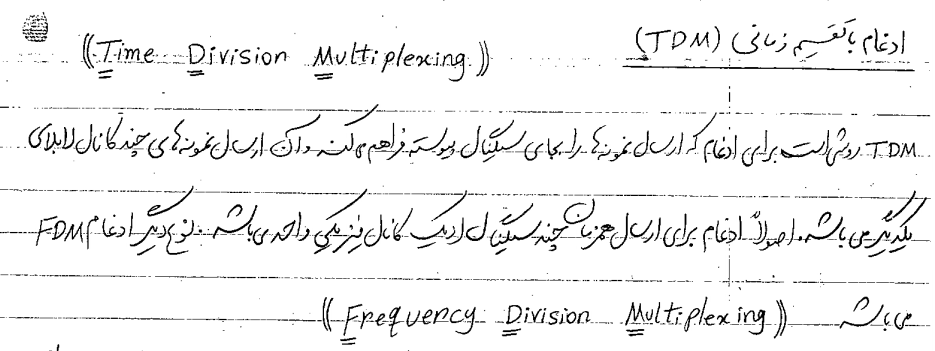 ادغام با تقسیم زمانی (TDM) ((Time Division Multiplexing))
TDM روش است برای ادغام که ارسال نمونه ها را بجای سیگنال پیوسته فراهم می کند و آن ارسال نمونه های چند کانال لابلای
یکدیگر می باشد. اصولاً ادغام برای ارسال همزمان چند سیگنال از یک کانال فیزیکی واحد می باشد. نوع دیگر ادغام FDM
می باشد ((Frequency Division Multiplexing))